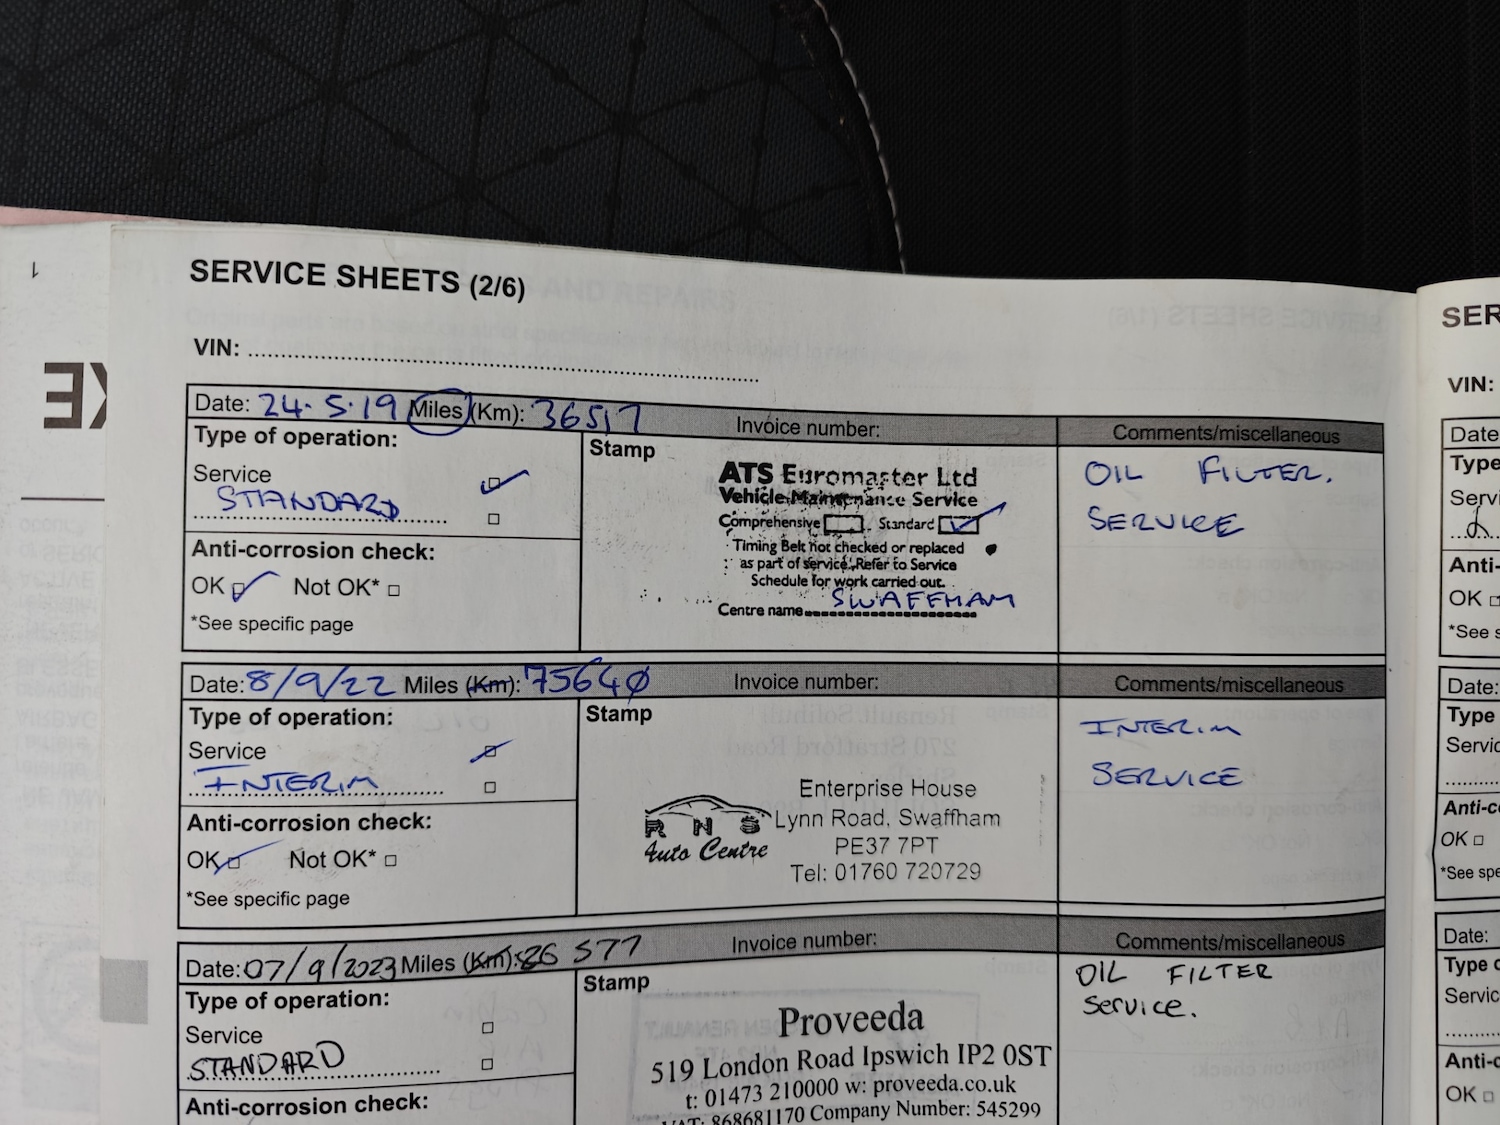 SERVICE SHEETS (2/6)
VIN:
Date: 24.5.19 Miles (Km): 36517 Invoice number: Comments/miscellaneous
Type of operation:
Service
STANDARD
Anti-corrosion check:
OK Not OK*
*See specific page
Stamp
ATS Euromaster Ltd
Vehicle Maintenance Service
Comprehensive Standard
Timing Belt not checked or replaced
as part of service. Refer to Service
Schedule for work carried out.
Centre name SWAFFHAM
OIL FILTER.
SERVICE
Date: 8/9/22 Miles (Km): 75640 Invoice number: Comments/miscellaneous
Type of operation:
Service
INTERIM
Anti-corrosion check:
OK Not OK*
*See specific page
Stamp
RNS
Auto Centre
Enterprise House
Lynn Road, Swaffham
PE37 7PT
Tel: 01760 720729
INTERIM
SERVICE
Date: 07/9/2023 Miles (Km): 86 577 Invoice number: Comments/miscellaneous
Type of operation:
Service
STANDARD
Anti-corrosion check:
Stamp
Proveeda
519 London Road Ipswich IP2 0ST
t: 01473 210000 w: proveeda.co.uk
VAT: 868681170 Company Number: 545299
OIL FILTER
Service.
SER
VIN:
Date
Type
Servi
Anti-
OK
*See s
Date:
Type
Servic
Anti-c
OK
*See spe
Date:
Type o
Servic
Anti-c
OK